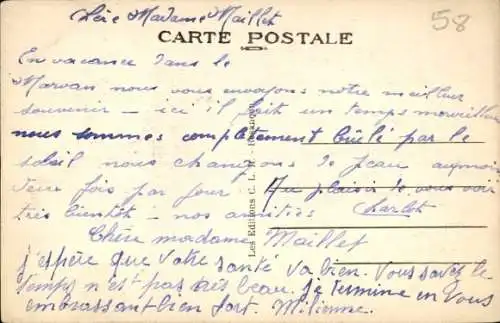 Chère Madame Maillet
58
CARTE POSTALE
En vacance dans le
Morvan nous vous envoyons notre meilleur
souvenir - ici il fait un temps merveilleux
nous sommes complètement brûlé par le
soleil nous changeons de peau au moin
deux fois par jour. Au plaisir de vous voir
très bientôt - nos amitiés Charlot
Les Editions C. L.
Chère madame Maillet
j'espère que votre santé va bien. Vous savez le
temps n'est pas très beau. je termine en vous
embrassant bien fort. Milienne.